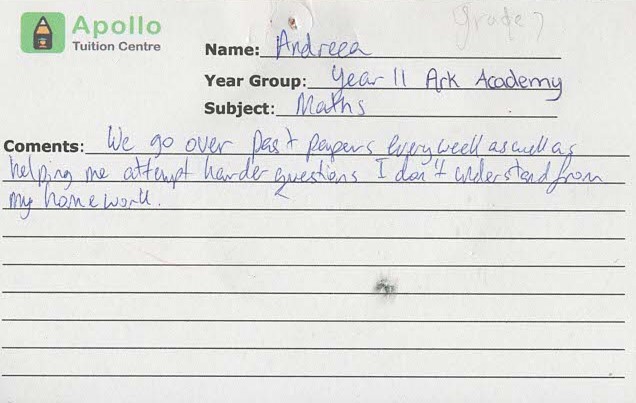 Apollo
Tuition Centre
Grade 7
Name: Andreea
Year Group: Year 11 Ark Academy
Subject: Maths
Coments: We go over past papers every week as well as
helping me attempt harder questions I don't understand from
my homework.